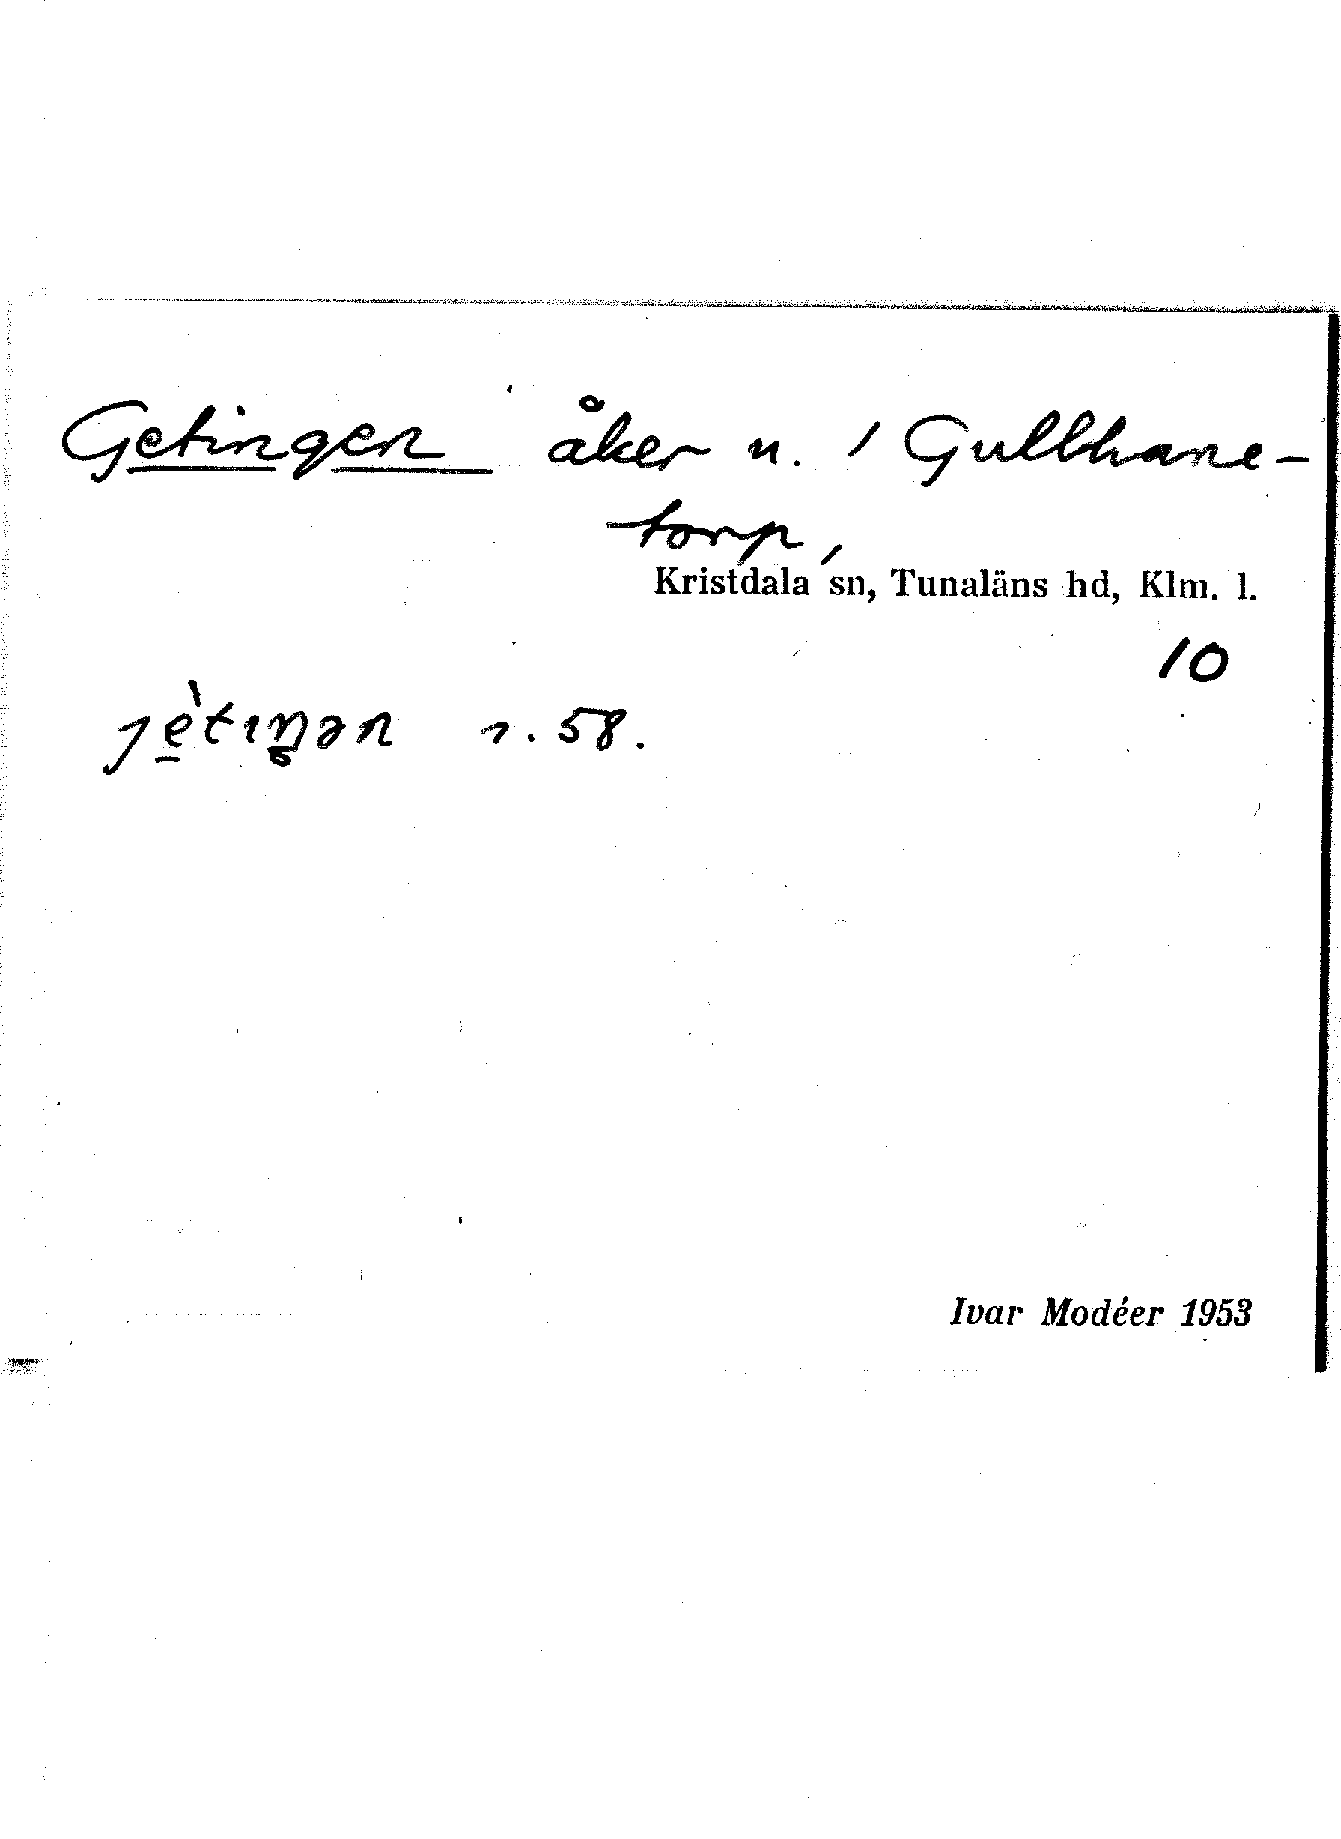 Getingen åker u. / Gullhane-
torp,
Kristdala sn, Tunaläns hd, Klm. l.
10
jè̱tıŋən r. 58.
Ivar Modéer 1953